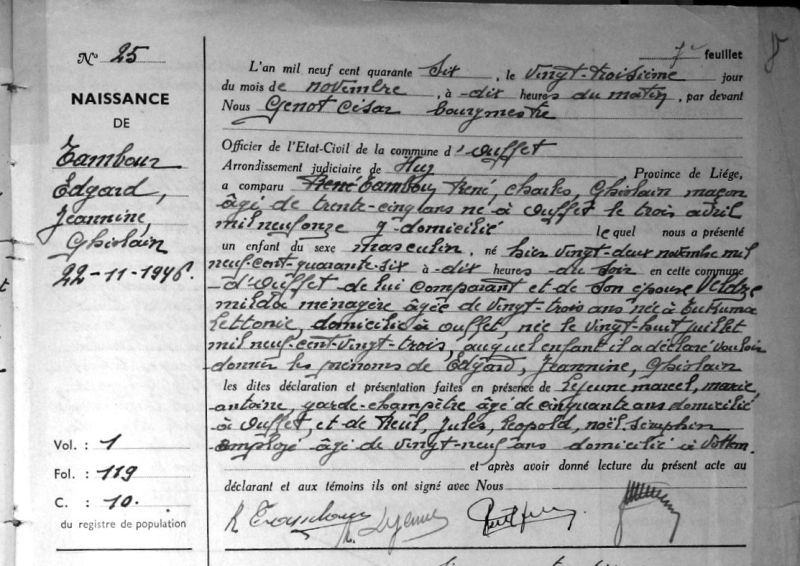 N° 25
NAISSANCE
DE
Tambour
Edgard,
Jeannine,
Ghislain
22-11-1946.
Vol. : 1
Fol. : 119
C. : 10.
du registre de population
7e feuillet
L'an mil neuf cent quarante six, le vingt-troisième jour
du mois de novembre, à dix heures du matin, par devant
Nous Genot César bourgmestre
Officier de l'Etat-Civil de la commune d'Ouffet
Arrondissement judiciaire de Huy Province de Liége,
a comparu René Tambour, René, Charles, Ghislain maçon
âgé de trente-cinq ans né à Ouffet le trois avril
mil neuf onze y domicilié lequel nous a présenté
un enfant du sexe masculin, né hier vingt-deux novembre mil
neuf-cent-quarante-six à dix heures du soir en cette commune
d'Ouffet de lui comparant et de son épouse
ménagère âgée de vingt-trois ans née à
Lettonie, domicilié à Ouffet, née le vingt-huit juillet
mil neuf-cent-vingt-trois, auquel enfant il a déclaré vouloir
donner les prénoms de Edgard, Jeannine, Ghislain
les dites déclaration et présentation faites en présence de Lejeune marcel, marie,
antoine, garde-champêtre âgé de cinquante ans domicilié
à Ouffet, et de Jules, Léopold, noël-séraphin
employé âgé de vingt-neuf ans domicilié à
et après avoir donné lecture du présent acte au
déclarant et aux témoins ils ont signé avec Nous
R Tambour Lejeune